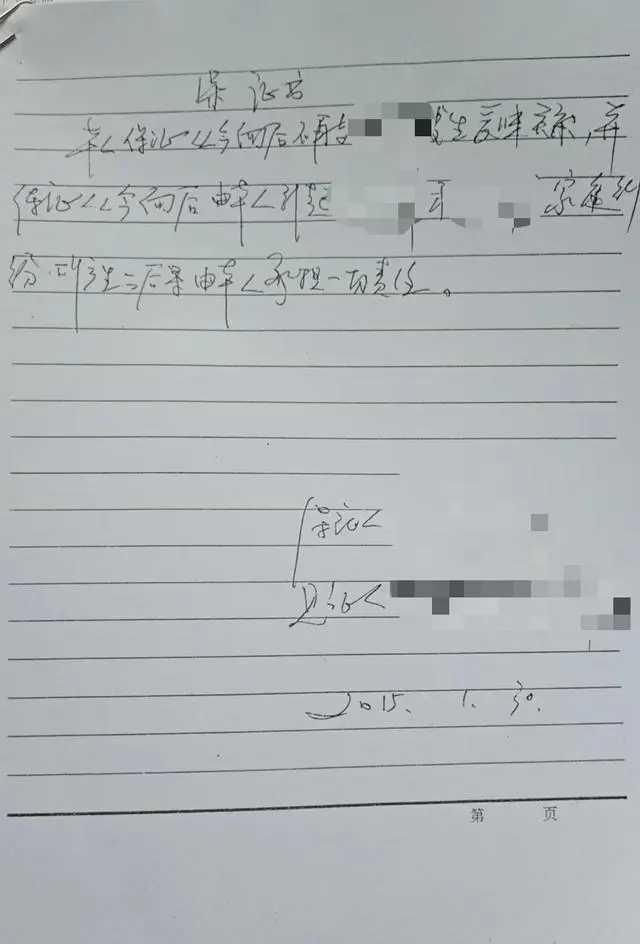 保证书
本人保证从今向后不再与 发生暧昧关系,并
保证从今向后由本人引起 家庭纠
纷所产生后果由本人承担一切责任。
保证人
见证人
2015. 1. 30.
第 页